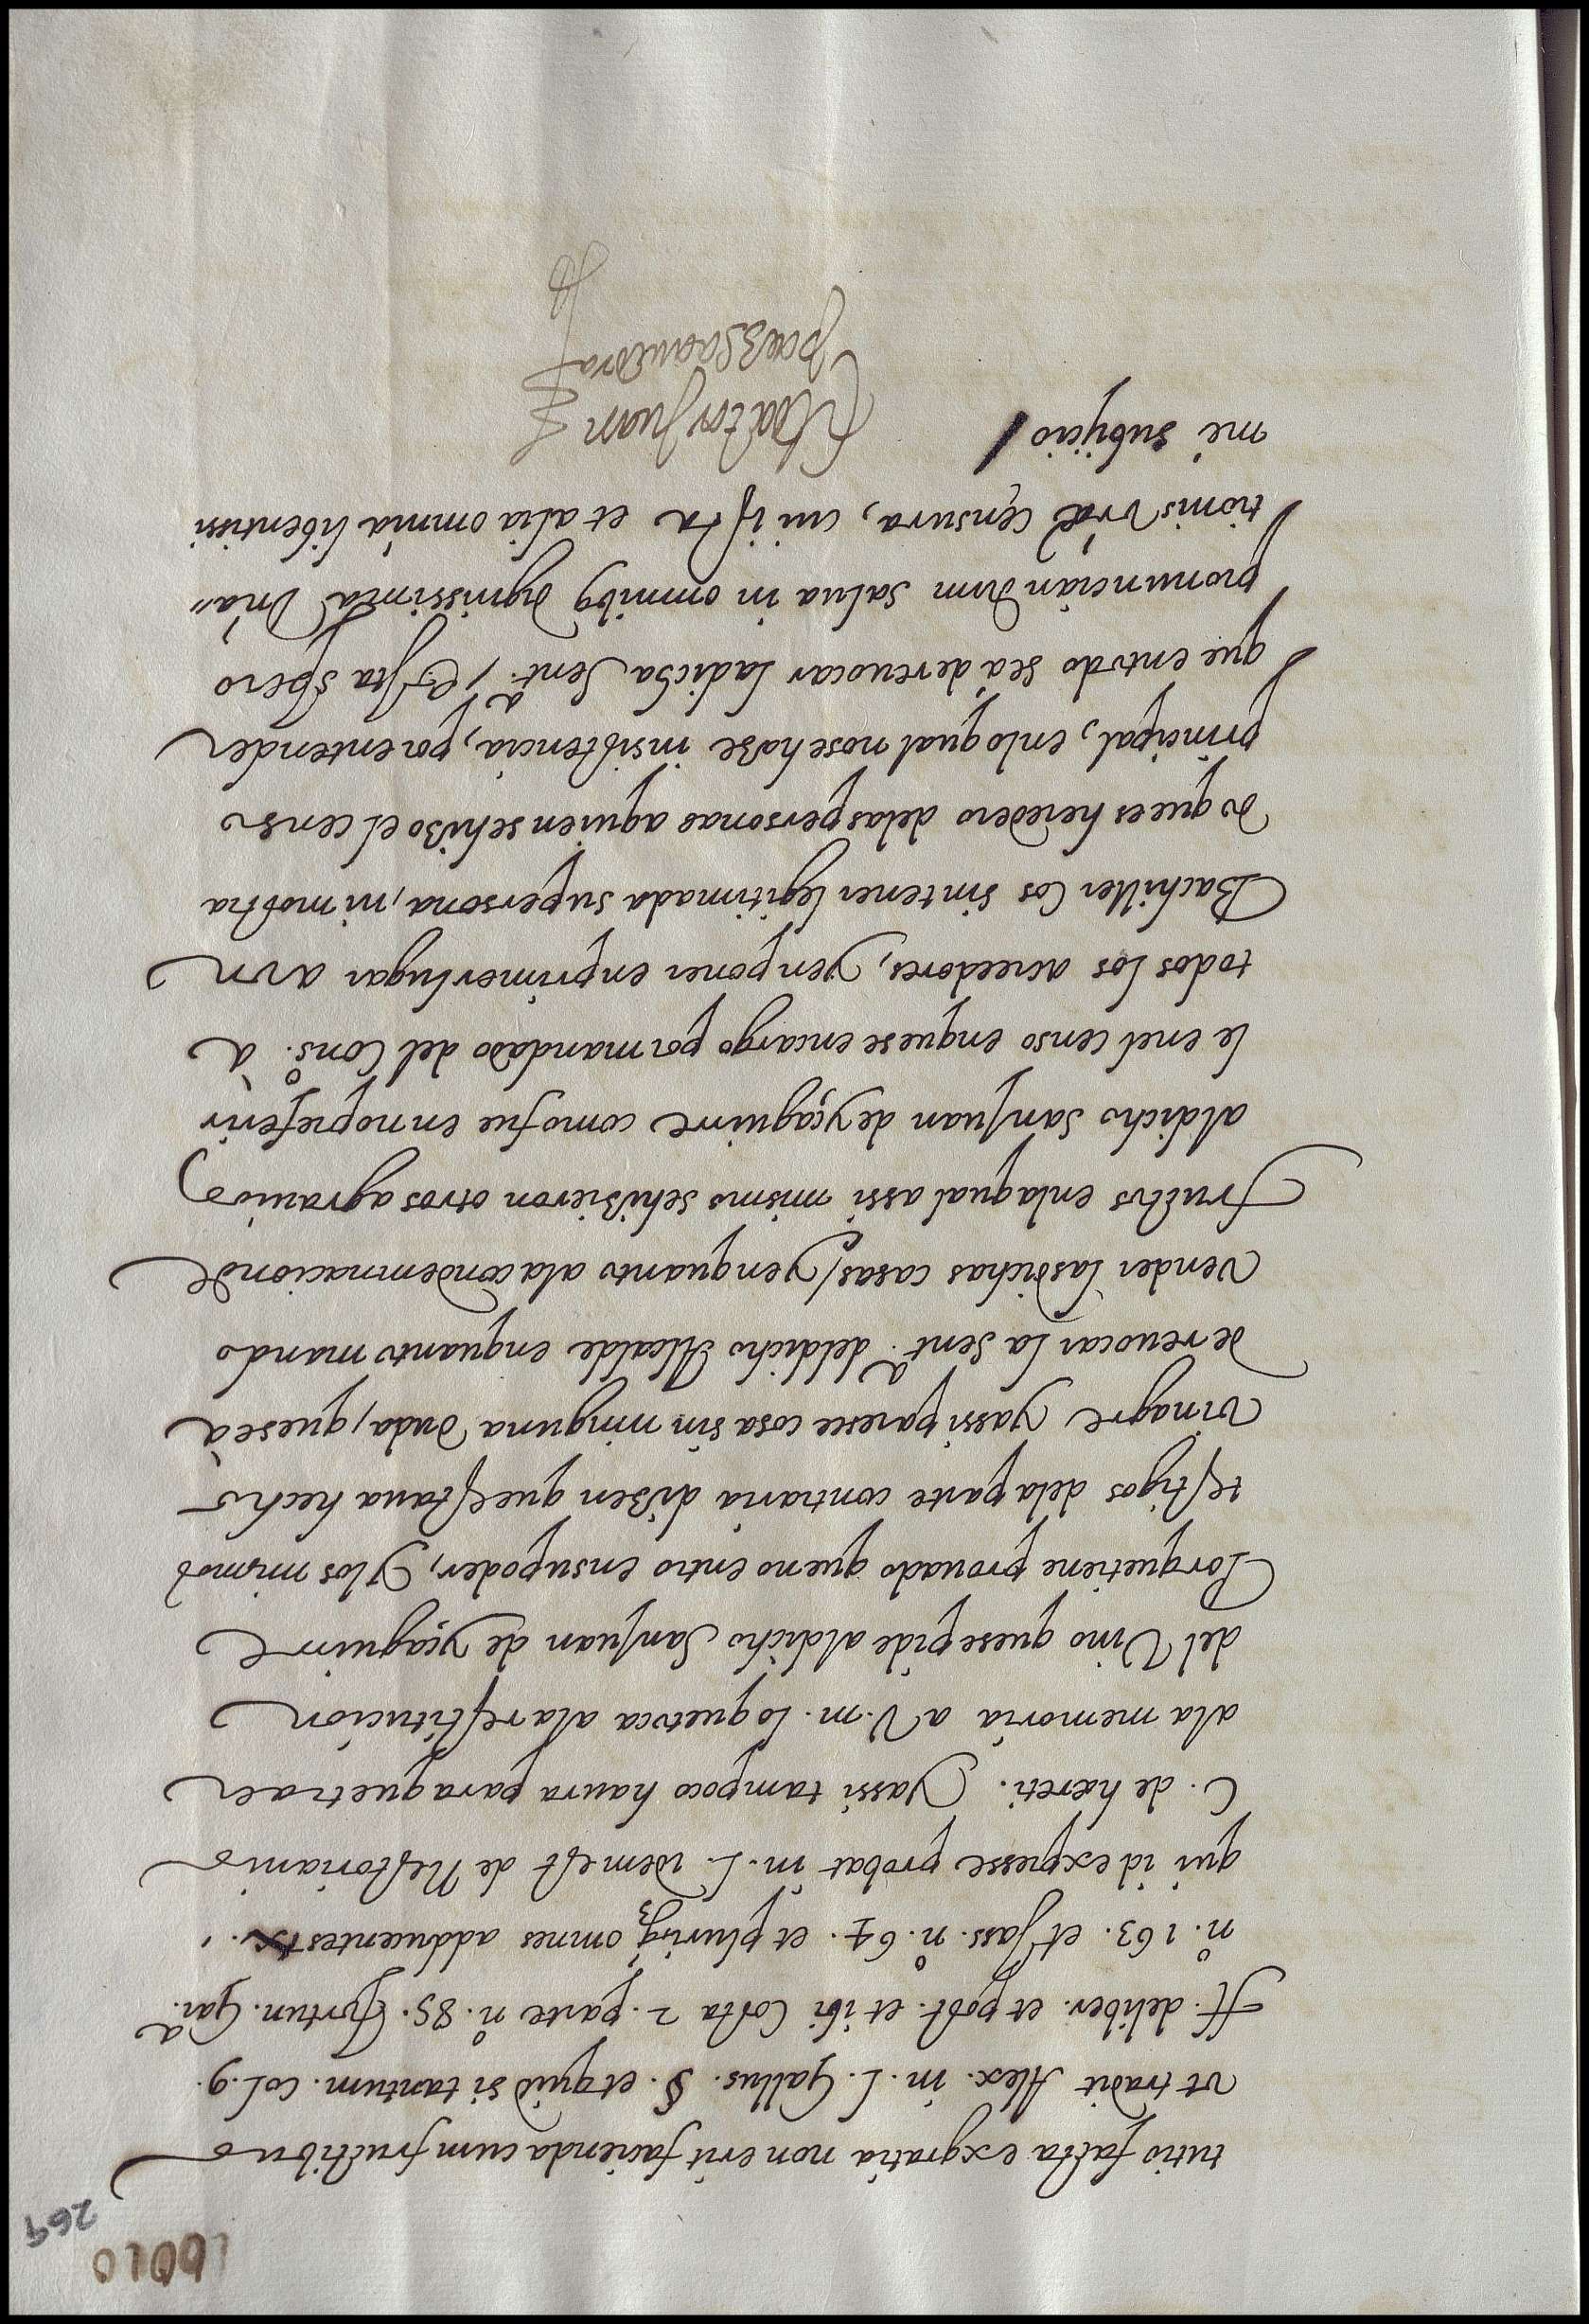 269
tutio facta ex gratia non erit facienda cum fructibus
vt tradit Alex. in. l. Gallus. §. et quid si tantum. col. 9.
ff. de liber. et post. et ibi Costa 2. parte nº. 85. Fortun. Garª.
nº. 163. et Jass. nº. 64. et plurib9 omnes adducentes
qui id expresse probat in. l. idem est de Nestorianis
C. de hæreti. Y assi tampoco haura para que traer
a la memoria a V.m. lo que toca a la restitucion
del Vino que se pide al dicho San Juan de yçaguirre
Porque tiene prouado que no entro en su poder, y los mismos
testigos de la parte contraria dizen que estaua hecho
vinagre y assi parece cosa sin ninguna duda, que se à
de reuocar la sentª. del dicho Alcalde en quanto mando
vender las dichas casas / y en quanto a la condemnacion de
fructos en la qual assi mismo se hizieron otros agrauios
al dicho San Juan de yçaguirre como fue en no preferir
le en el censo en que se encargo por mandado del Consº. à
todos los acreedores, y en poner en primer lugar a vn
Bachiller Cos sin tener legitimada su persona, ni mostra
do que es heredero de las personas a quien se hizo el censo
principal, en lo qual no se haze insistencia, por entender
que en todo se à de reuocar la dicha sentª. / Et ita spero
pronunciandum salua in omnib9 dignissima Dña"
tionis Vræ censura, cui ista et alia omnia libentissi
mè subijcio /
El doctor Juan
paez Saauedra